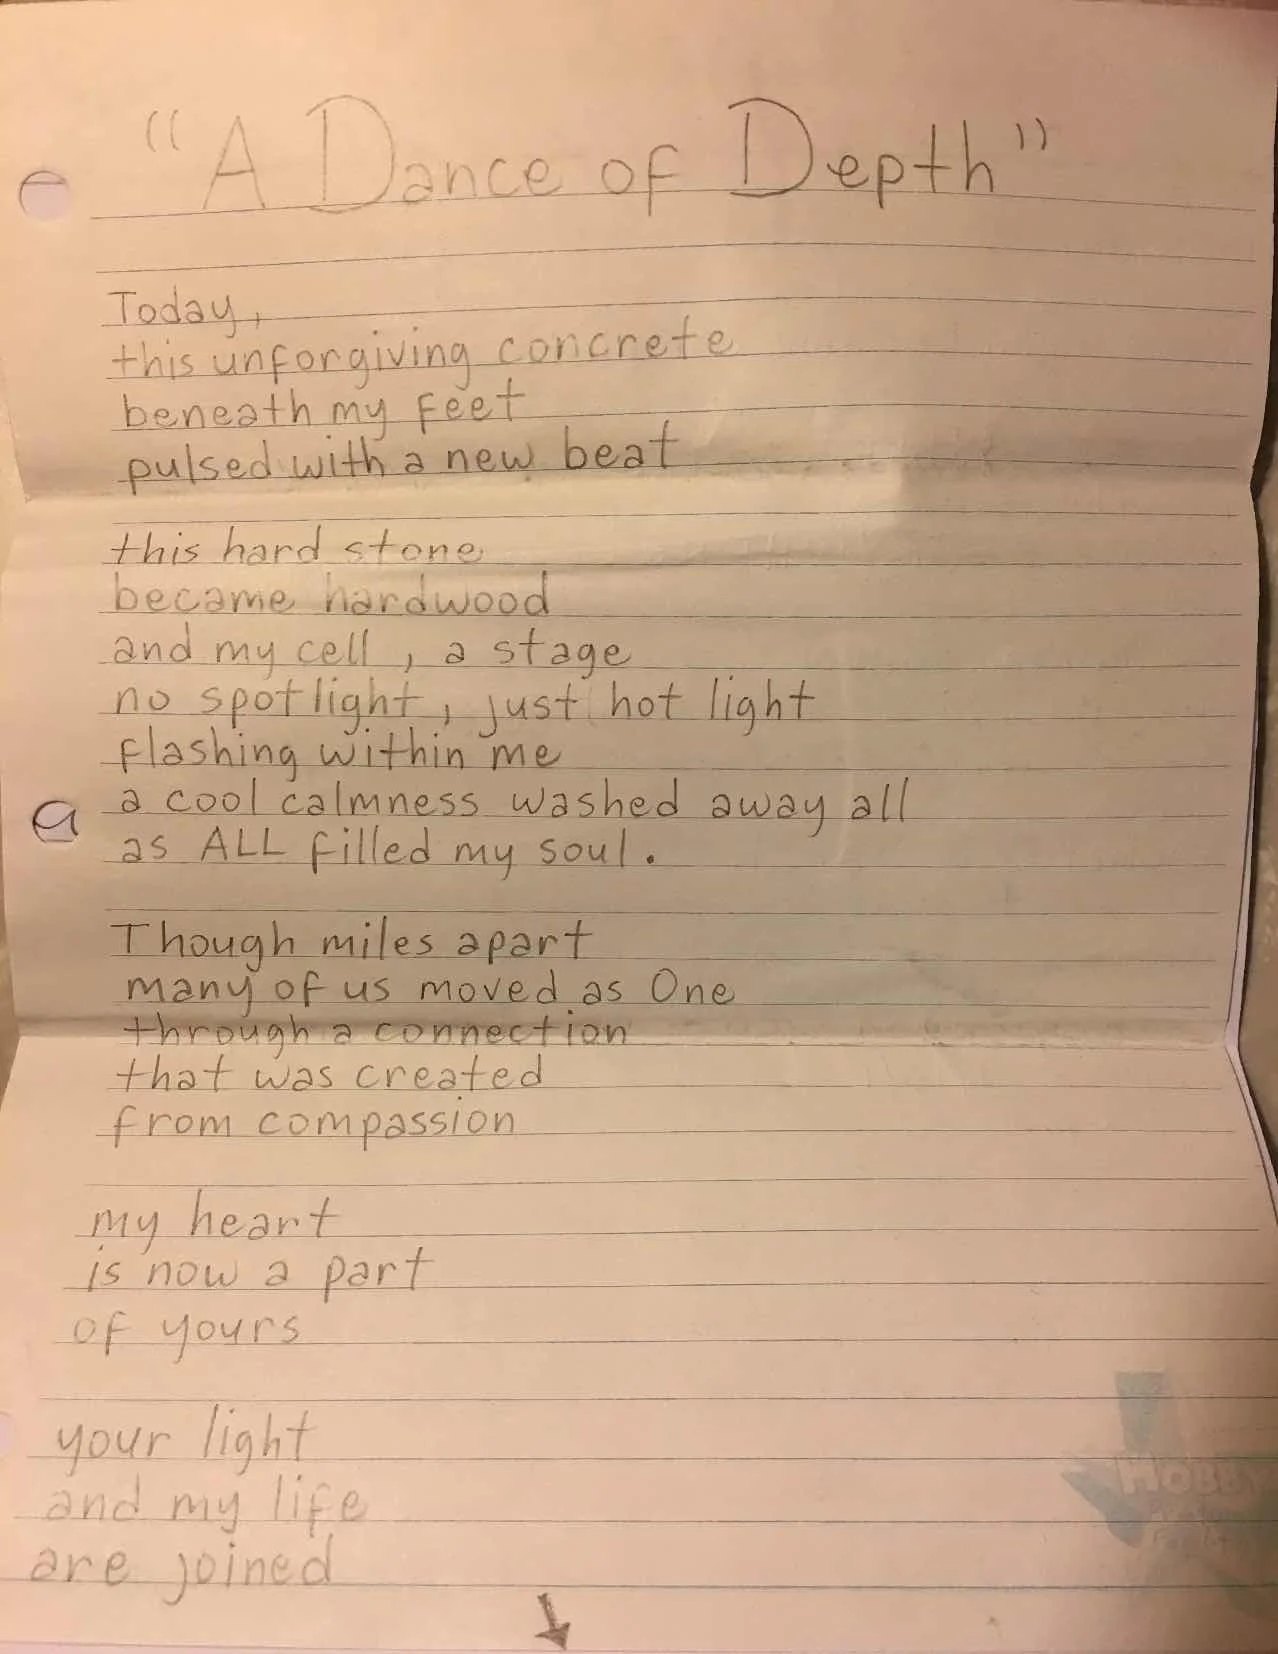 "A Dance of Depth"
Today,
this unforgiving concrete
beneath my feet
pulsed with a new beat
this hard stone
became hardwood
and my cell, a stage
no spotlight, just hot light
flashing within me
a cool calmness washed away all
as ALL filled my soul.
Though miles apart
many of us moved as One
through a connection
that was created
from compassion
my heart
is now a part
of yours
your light
and my life
are joined
HOBBY